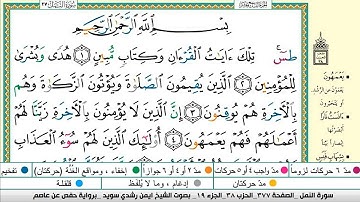 بِسْمِ ٱللَّهِ ٱلرَّحْمَٰنِ ٱلرَّحِيمِ
طسٓ ۚ تِلْكَ ءَايَٰتُ ٱلْقُرْءَانِ وَكِتَابٍ مُّبِينٍ ١ هُدًى وَبُشْرَىٰ
لِلْمُؤْمِنِينَ ٢ ٱلَّذِينَ يُقِيمُونَ ٱلصَّلَوٰةَ وَيُؤْتُونَ ٱلزَّكَوٰةَ وَهُم
بِٱلْءَاخِرَةِ هُمْ يُوقِنُونَ ٣ إِنَّ ٱلَّذِينَ لَا يُؤْمِنُونَ بِٱلْءَاخِرَةِ زَيَّنَّا لَهُمْ
أَعْمَٰلَهُمْ فَهُمْ يَعْمَهُونَ ٤ أُو۟لَٰٓئِكَ ٱلَّذِينَ لَهُمْ سُوٓءُ ٱلْعَذَابِ
يَعْمَهُونَ
مدّ ٦ حركات لزوماً مدّ واجب ٤ أو ٥ حركات مدّ ٢ أو ٤ أو ٦ جوازاً إخفاء، ومواقع الغُنَّة (حركتان) تفخيم
مدّ حركتان إدغام، وما لا يُلفَظ قلقلة
سورة النمل . الصفحة ٣٧٧ . الحزب ٣٨ . الجزء ١٩ . بصوت الشيخ أيمن رشدي سويد . برواية حفص عن عاصم